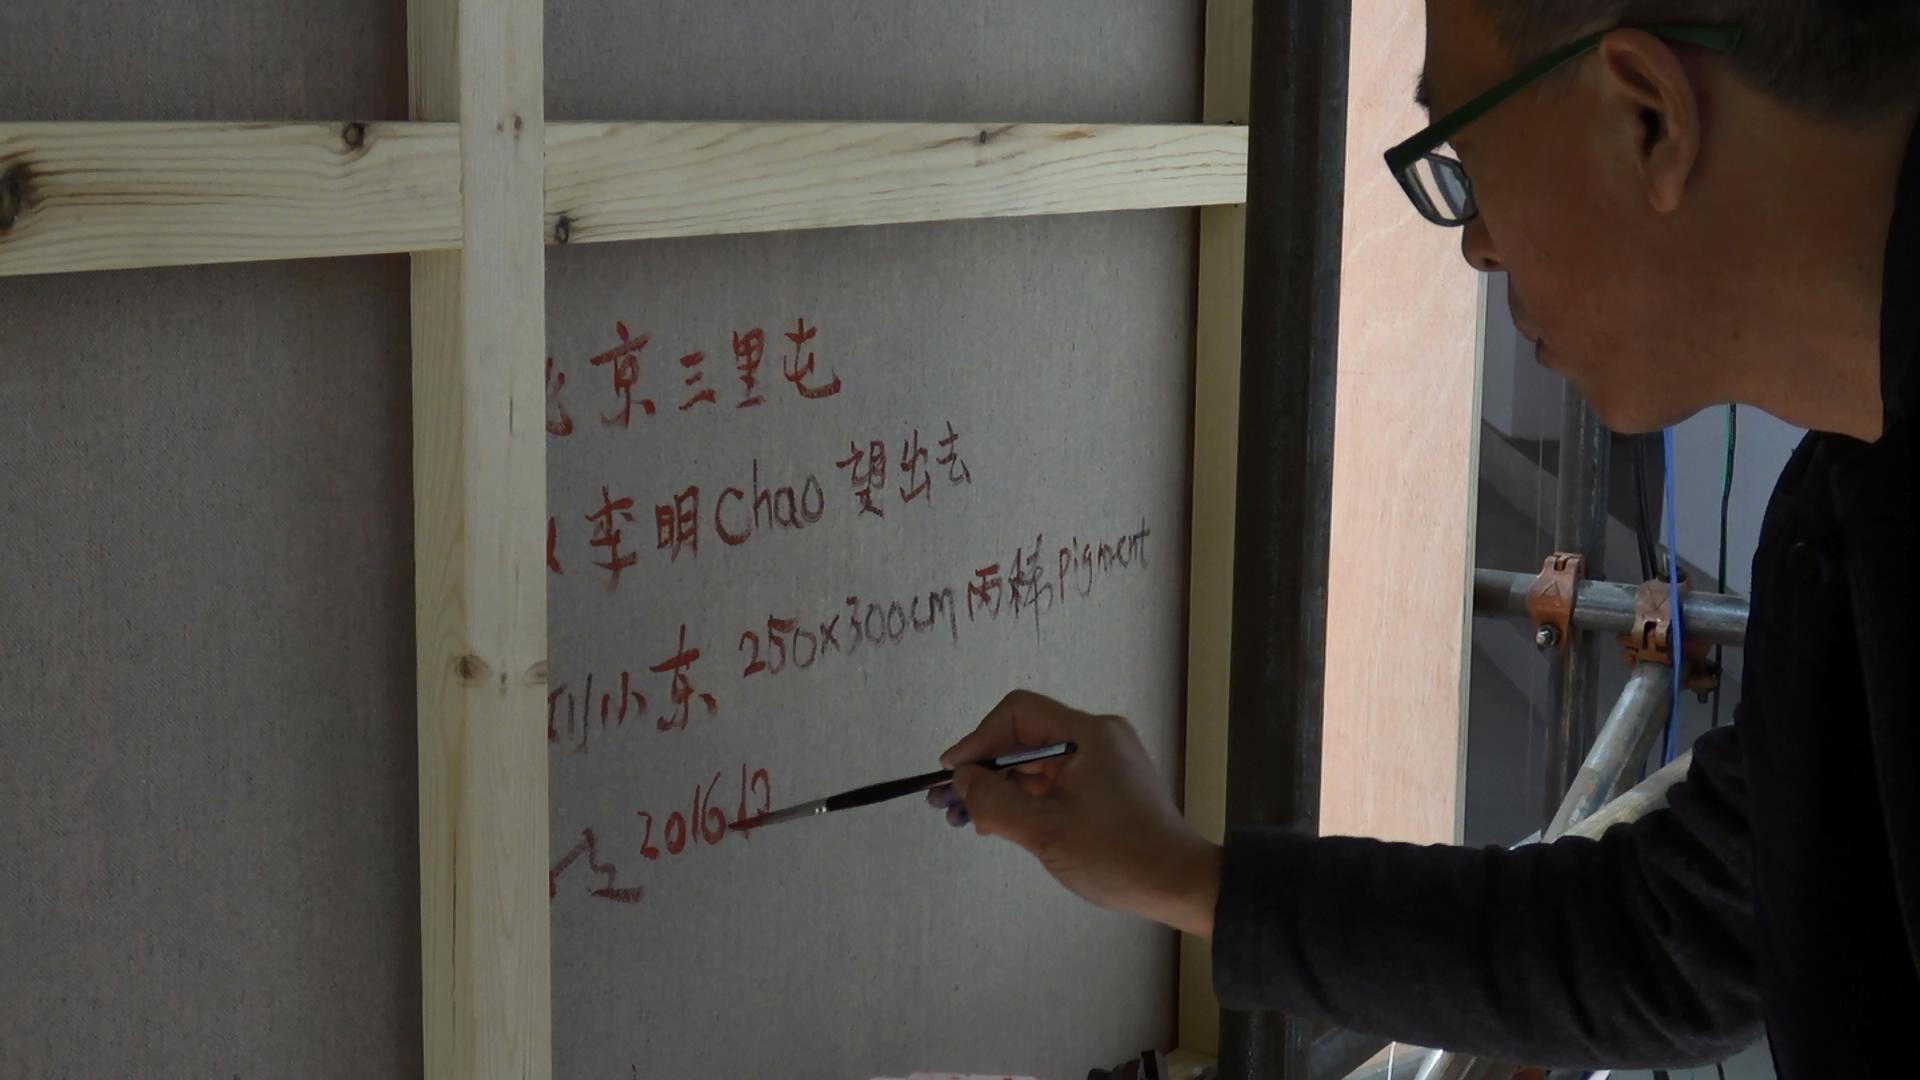 北京三里屯
从李明Chao望出去
刘小东 250x300cm 丙稀 pigment
201612